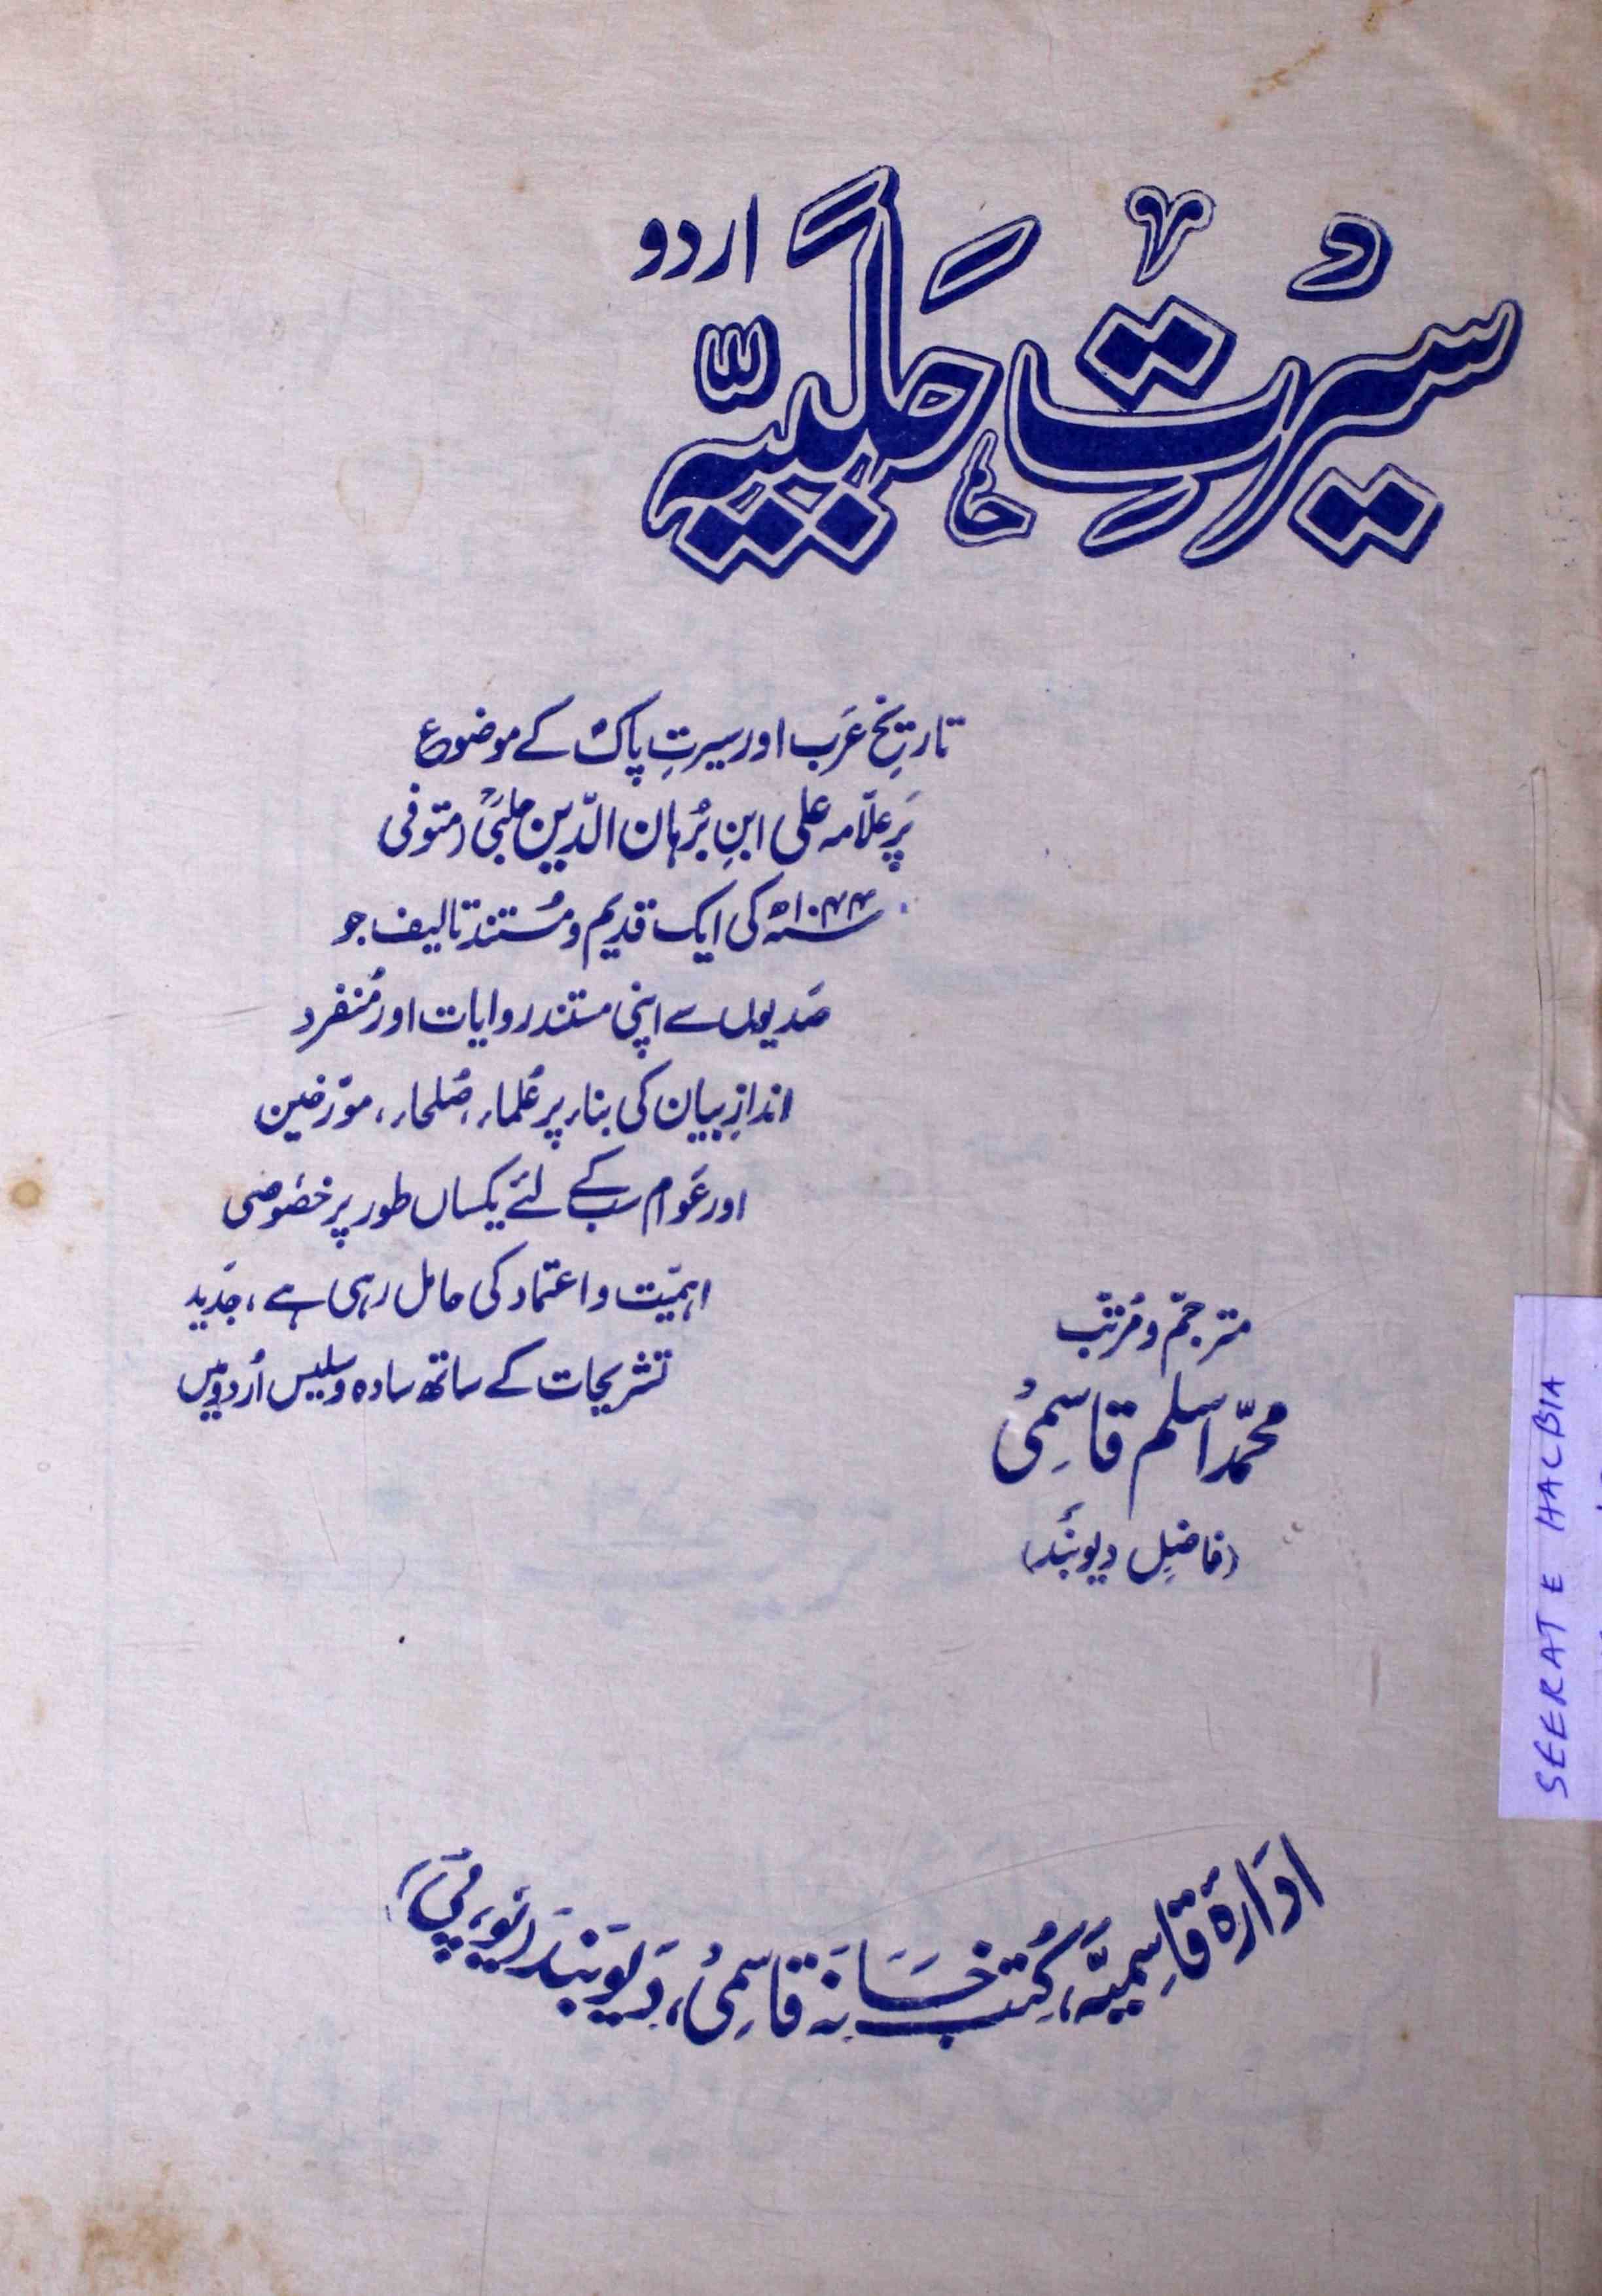 سیرتِ حلبیہ اردو
تاریخِ عرب اور سیرتِ پاک کے موضوع
پر علّامہ علی ابنِ برُہان الدّین حلبیؒ (متوفی
۱۰۴۴ھ کی ایک قدیم و مُستند تالیف جو
صَدیوں سے اپنی مستند روایات اور مُنفرد
اندازِ بیان کی بناء پر عُلماء، صُلحاء، مورّخین
اور عَوام سب کے لئے یکساں طور پر خصُوصی
اہمیّت و اعتماد کی حامل رہی ہے، جَدید
تشریحات کے ساتھ سادہ و سلیس اُردو میں
مترجم و مُرتّب
محمّد اسلم قاسِمی
(فاضِل دیوبَند)
ادَارہٴ قاسِمیَّہ، کُتب خَانَہ قاسِمیُ، دَیوبَند (یُو، پیُ)
SEERAT E HALBIA